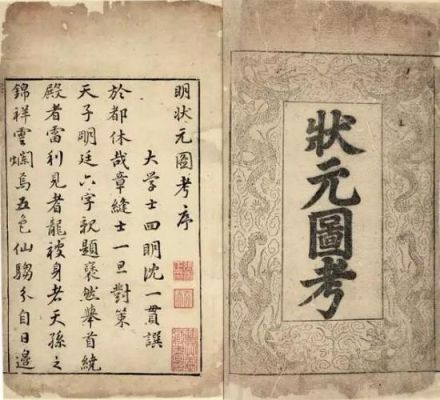 狀元圖考
明狀元圖考序
大學士四明沈一貫譔
於都休哉章縫士一旦對策
天子明廷六字親題褎然舉首繞
殿者雷利見者龍被身者天孫之
錦祥雲爛焉五色仙騶分自日邊